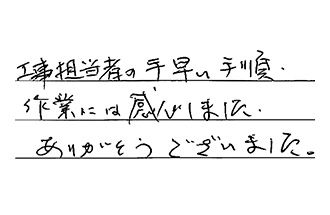 工事担当者の手早い手順.
作業には感心しました.
ありがそうございました。